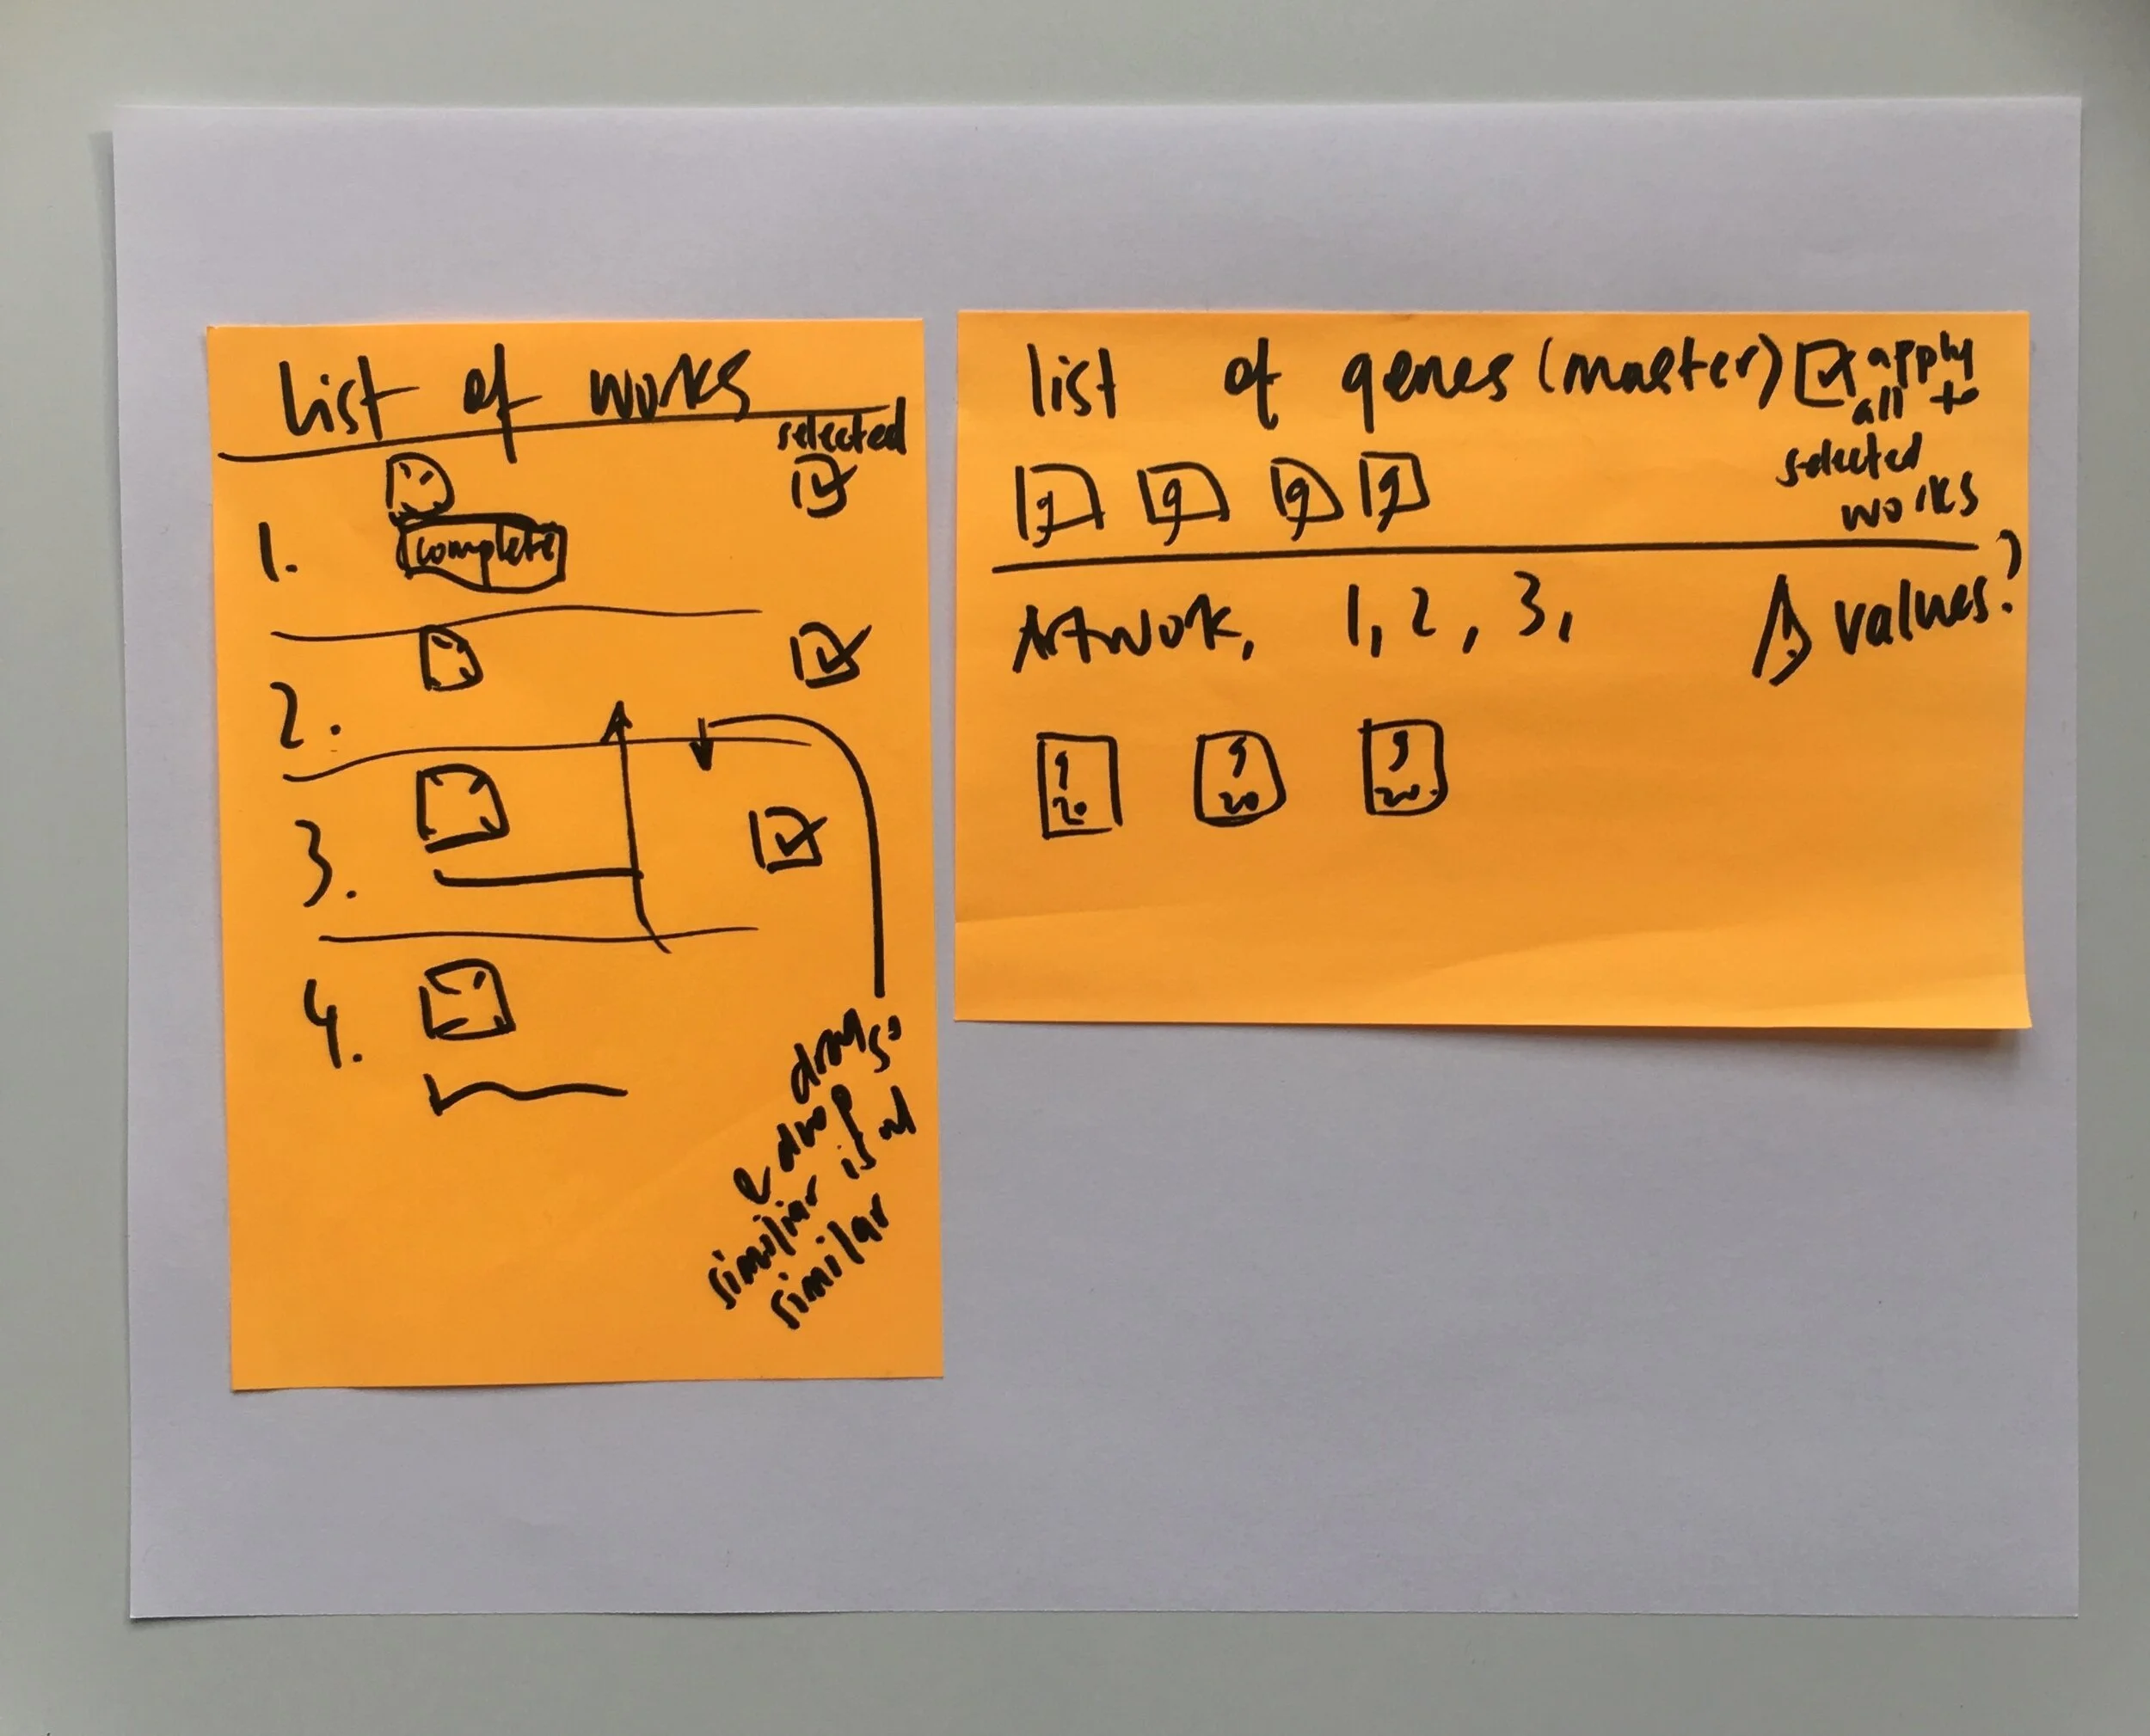 List of works
selected
1.
complete
2.
3.
4.
drag so
& drop
similiar is w/
similar
list of genes (master) apply
all to
selected
works
g g g g
Artwork, 1, 2, 3, Δ values?
g g g
20 20 20